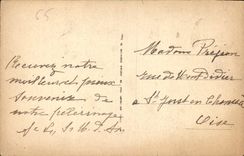 65
Recevez notre
meilleur et pieux
souvenir de
notre pèlerinage
Madame
rue de
à St Just en Chaussée
Oise